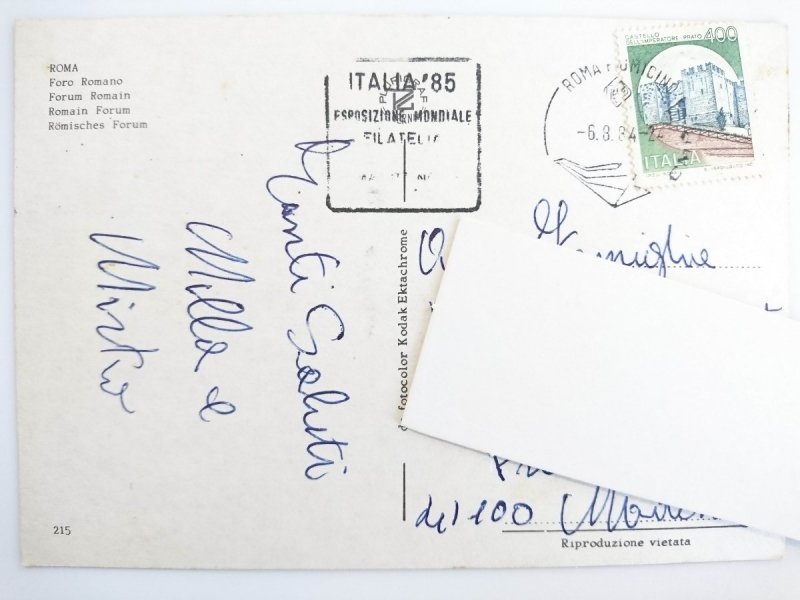 ROMA
Foro Romano
Forum Romain
Romain Forum
Römisches Forum
ITALIA '85
ESPOSIZIONE MONDIALE
FILATELI
ROMA FIUMICINO
-6.8.84-2
CASTELLO
DELL'IMPERATORE - PRATO
400
ITALIA
Tanti Saluti
Milla e
Mirko
da fotocolor Kodak Ektachrome
del 100
Riproduzione vietata
215